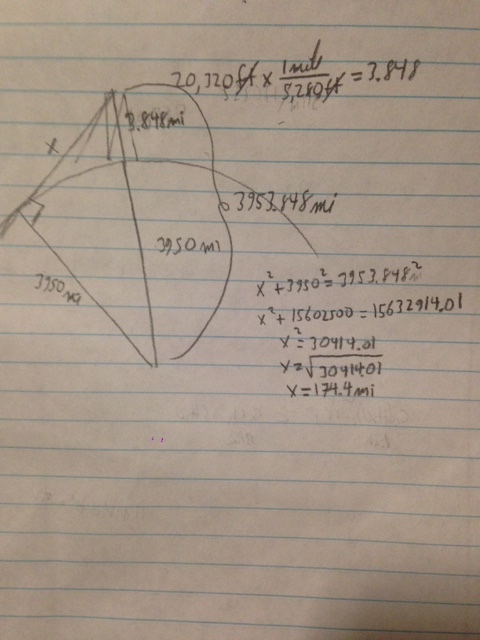 20,320ft x 1mile/5,280ft = 3.848
3.848mi
x
3953.848mi
3950mi
3950mi
x²+3950²=3953.848²
x²+15602500=15632914.01
x²=30414.01
x=√30414.01
x=174.4mi